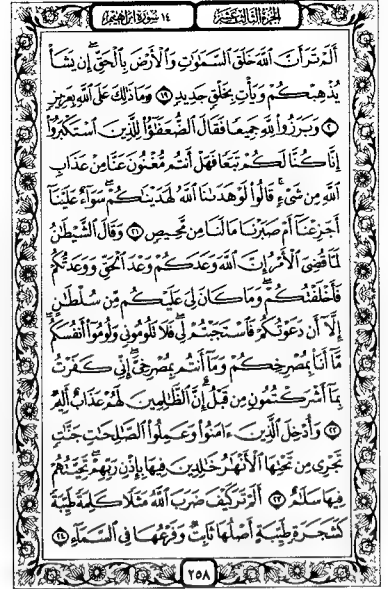 الجزء الثالث عشر ١٤ سورة ابراهيم
أَلَمْ تَرَ أَنَّ ٱللَّهَ خَلَقَ ٱلسَّمَٰوَٰتِ وَٱلْأَرْضَ بِٱلْحَقِّ ۚ إِن يَشَأْ
يُذْهِبْكُمْ وَيَأْتِ بِخَلْقٍ جَدِيدٍ ١٩ وَمَا ذَٰلِكَ عَلَى ٱللَّهِ بِعَزِيزٍ
٢٠ وَبَرَزُوا۟ لِلَّهِ جَمِيعًا فَقَالَ ٱلضُّعَفَٰٓؤُا۟ لِلَّذِينَ ٱسْتَكْبَرُوٓا۟
إِنَّا كُنَّا لَكُمْ تَبَعًا فَهَلْ أَنتُم مُّغْنُونَ عَنَّا مِنْ عَذَابِ
ٱللَّهِ مِن شَىْءٍ ۚ قَالُوا۟ لَوْ هَدَىٰنَا ٱللَّهُ لَهَدَيْنَٰكُمْ ۖ سَوَآءٌ عَلَيْنَآ
أَجَزِعْنَآ أَمْ صَبَرْنَا مَا لَنَا مِن مَّحِيصٍ ٢١ وَقَالَ ٱلشَّيْطَٰنُ
لَمَّا قُضِىَ ٱلْأَمْرُ إِنَّ ٱللَّهَ وَعَدَكُمْ وَعْدَ ٱلْحَقِّ وَوَعَدتُّكُمْ
فَأَخْلَفْتُكُمْ ۖ وَمَا كَانَ لِىَ عَلَيْكُم مِّن سُلْطَٰنٍ
إِلَّآ أَن دَعَوْتُكُمْ فَٱسْتَجَبْتُمْ لِى ۖ فَلَا تَلُومُونِى وَلُومُوٓا۟ أَنفُسَكُم ۖ
مَّآ أَنَا۠ بِمُصْرِخِكُمْ وَمَآ أَنتُم بِمُصْرِخِىَّ ۖ إِنِّى كَفَرْتُ
بِمَآ أَشْرَكْتُمُونِ مِن قَبْلُ ۗ إِنَّ ٱلظَّٰلِمِينَ لَهُمْ عَذَابٌ أَلِيمٌ
٢٢ وَأُدْخِلَ ٱلَّذِينَ ءَامَنُوا۟ وَعَمِلُوا۟ ٱلصَّٰلِحَٰتِ جَنَّٰتٍ
تَجْرِى مِن تَحْتِهَا ٱلْأَنْهَٰرُ خَٰلِدِينَ فِيهَا بِإِذْنِ رَبِّهِمْ ۖ تَحِيَّتُهُمْ
فِيهَا سَلَٰمٌ ٢٣ أَلَمْ تَرَ كَيْفَ ضَرَبَ ٱللَّهُ مَثَلًا كَلِمَةً طَيِّبَةً
كَشَجَرَةٍ طَيِّبَةٍ أَصْلُهَا ثَابِتٌ وَفَرْعُهَا فِى ٱلسَّمَآءِ ٢٤
٢٥٨